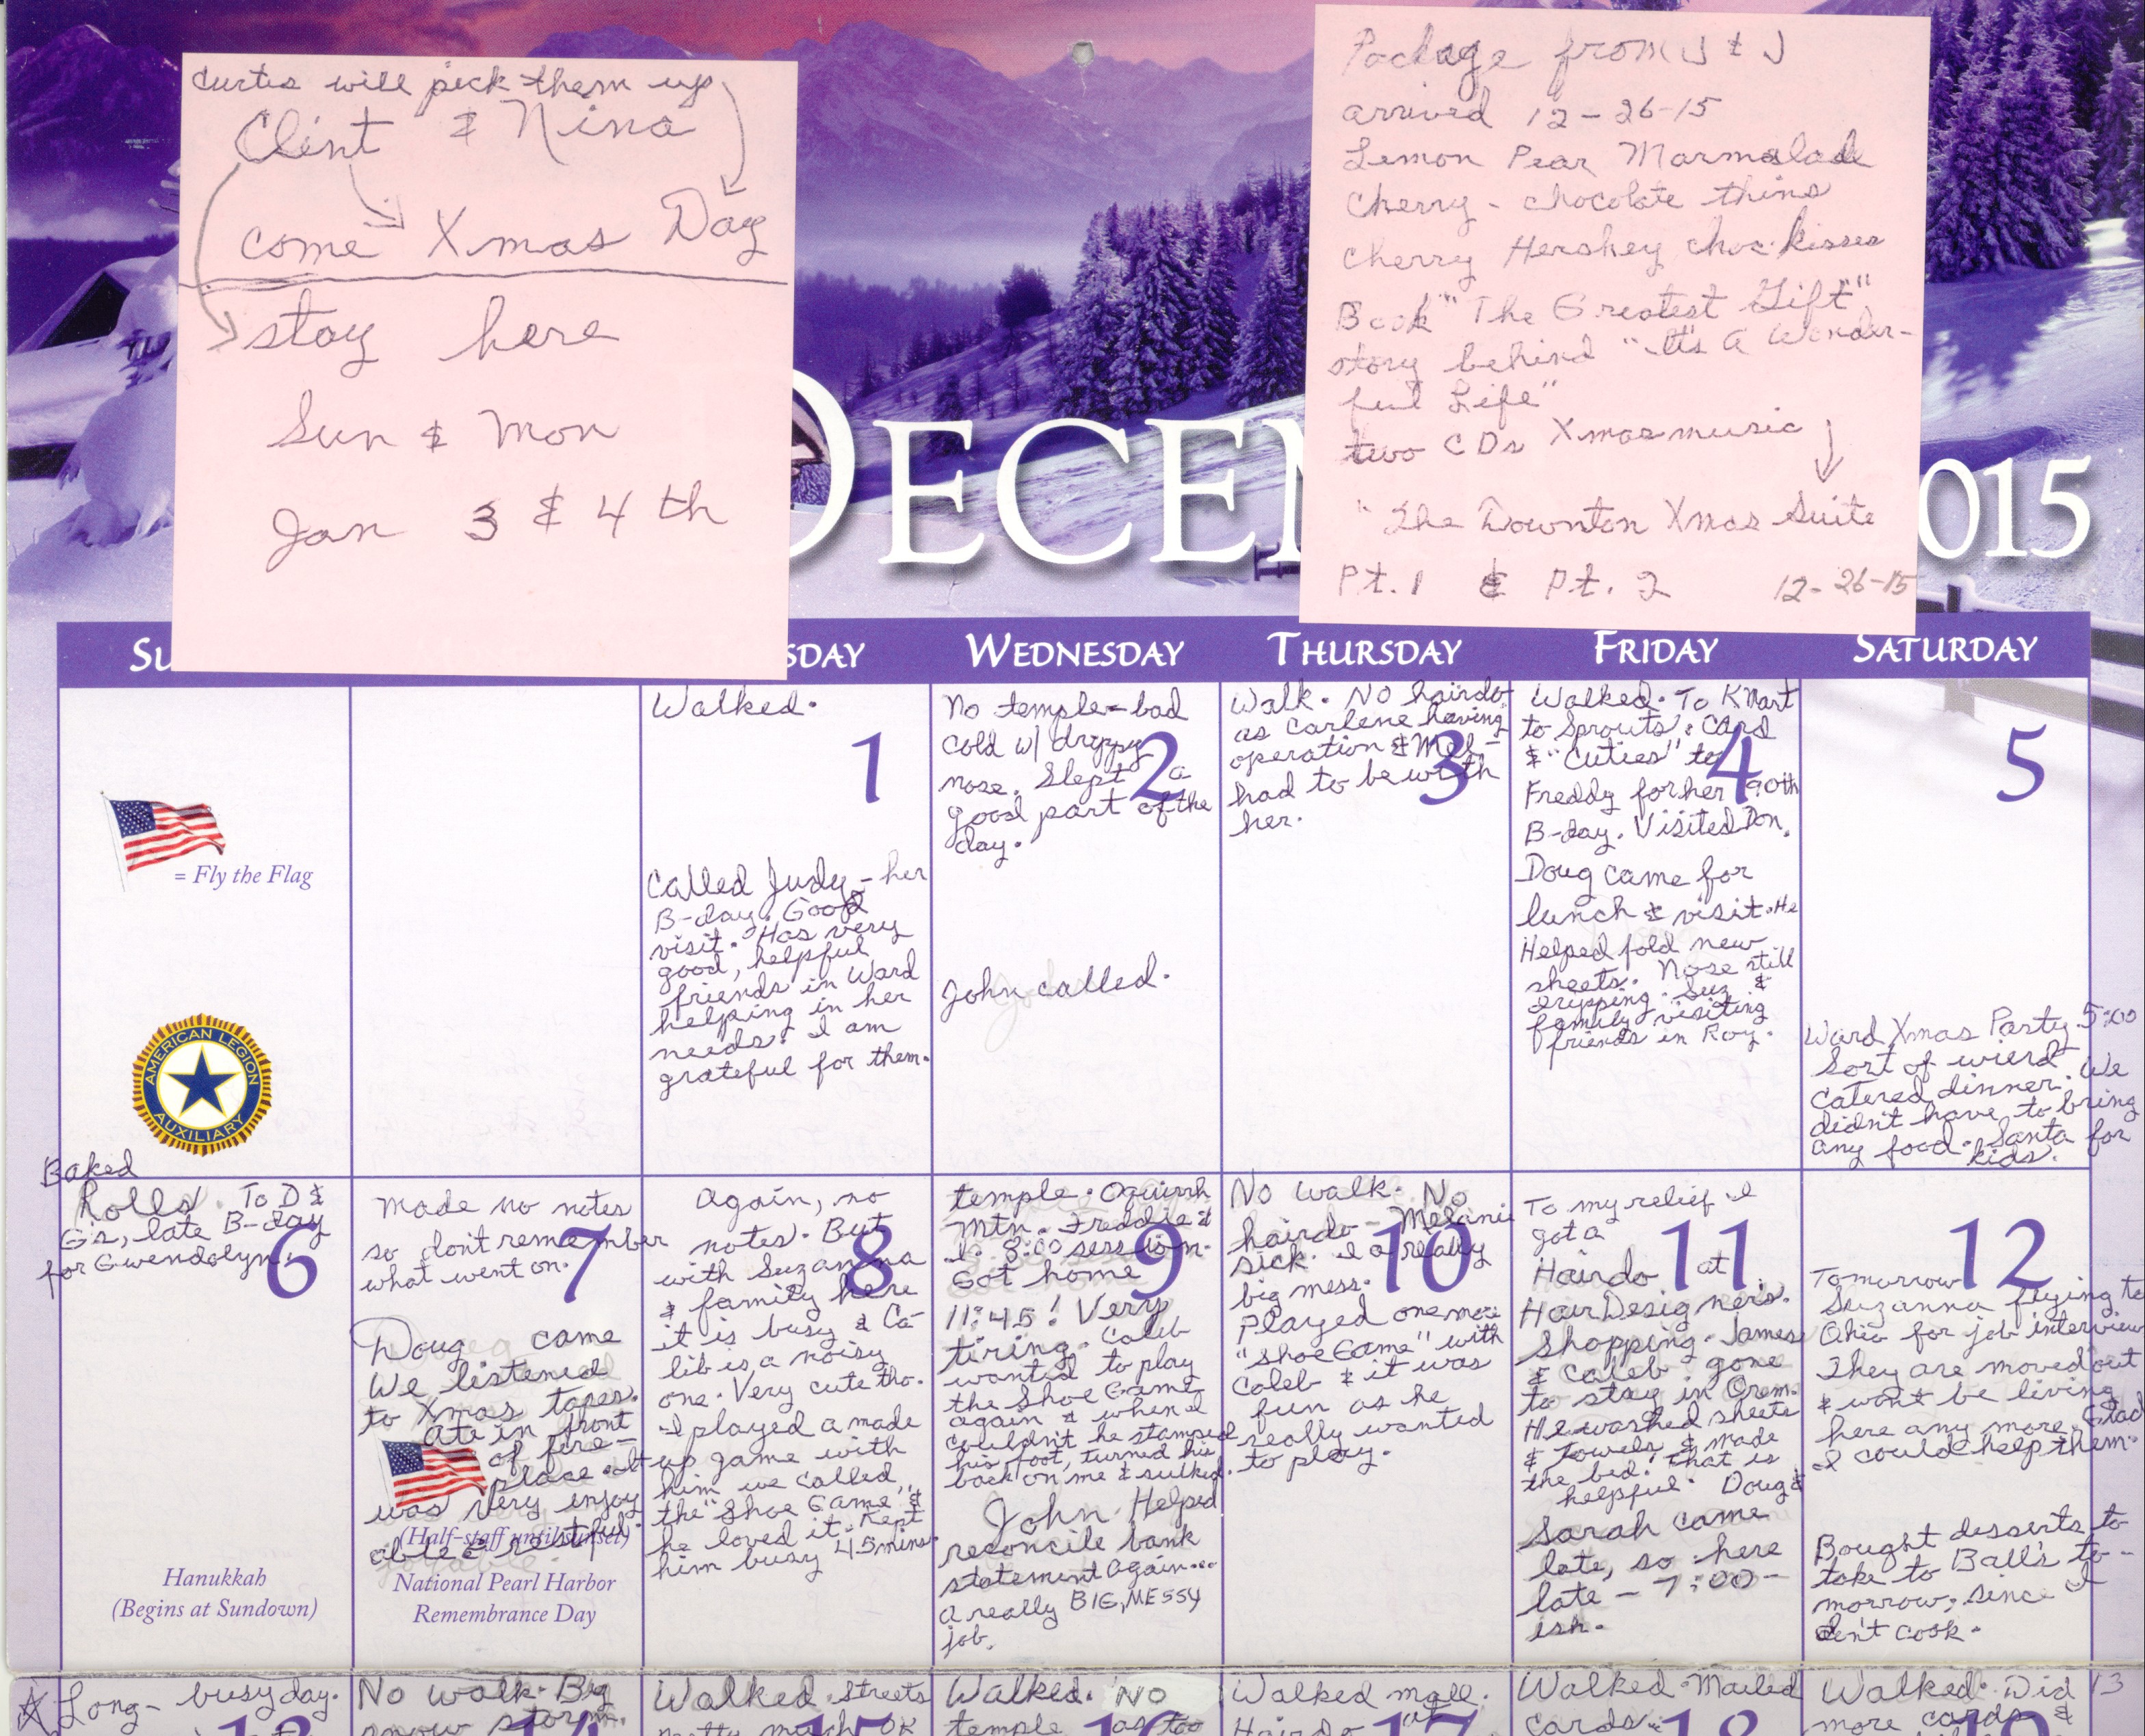 Curtis will pick them up
Clint & Nina
come Xmas Day
stay here
Sun & Mon
Jan 3 & 4 th
Package from J & J
arrived 12-26-15
Lemon Pear Marmalade
Cherry - chocolate thins
Cherry Hershey choc. kisses
Book "The Greatest Gift"
story behind "It's A Wonder-
ful Life"
two CDs Xmas music
"The Downton Xmas Suite
Pt. 1 & Pt. 2 12-26-15
DECEM
015
SU
SDAY
WEDNESDAY
THURSDAY
FRIDAY
SATURDAY
= Fly the Flag
AMERICAN LEGION
AUXILIARY
1
Walked.
Called Judy - her
B-day. Good
visit. Has very
good, helpful
friends in Ward
helping in her
needs. I am
grateful for them.
2
No temple - bad
cold w/ drippy
nose. Slept a
good part of the
day.
John called.
3
Walk. No hairdo
as Carlene having
operation & Mel-
had to be with
her.
4
Walked. To K Mart
to Sprouts. Card
& "Cuties" to
Freddy for her 90th
B-day. Visited Don.
Doug came for
lunch & visit. He
Helped fold new
sheets. Nose still
dripping. Suz &
family visiting
friends in Roy.
5
Ward Xmas Party 5:00
Sort of wierd
Catered dinner. We
didn't have to bring
any food. Santa for
kids.
6
Baked
Rolls. To D &
G's, late B-day
for Gwendolyn.
Hanukkah
(Begins at Sundown)
7
Made no notes
so don't remember
what went on.
Doug came
We listened
to Xmas tapes.
Ate in front
of fire-
place. It
was very enjoy
able & restful.
(Half-staff until sunset)
National Pearl Harbor
Remembrance Day
8
Again, no
notes. But
with Suzanna
& family here
it is busy & Ca-
lib is a noisy
one. Very cute tho.
I played a made
up game with
him we called
the "Shoe Game" &
he loved it. Kept
him busy 45 mins.
9
temple. Oquirrh
Mtn. Freddie &
I. 8:00 session.
Got home
11:45! Very
tiring. Caleb
wanted to play
the Shoe Game
again & when I
couldn't he stamped
his foot, turned his
back on me & sulked.
John Helped
reconcile bank
statement again....
a really BIG, MESSY
job.
10
No walk. No
hairdo - Melanie
sick. I a really
big mess.
Played one more
"Shoe Game" with
Caleb & it was
fun as he
really wanted
to play.
11
To my relief I
got a
Hairdo at
Hair Designers.
Shopping. James
& Caleb gone
to stay in Orem.
He washed sheets
& Towels & made
the bed. That is
helpful. Doug &
Sarah came
late, so here
late - 7:00-
ish.
12
Tomorrow
Suzanna flying to
Ohio for job interview
They are moved out
& wont be living
here any more. Glad
I could help them.
Bought desserts to
take to Ball's to-
morrow, since I
don't cook.
Long- busy day.
13
No walk. Big
snow storm.
14
Walked. Streets
pretty much OK
15
Walked. No
temple as too
16
Walked mall.
Hairdo at
17
Walked. Mailed
cards.
18
Walked. Did
more cards &
19
13